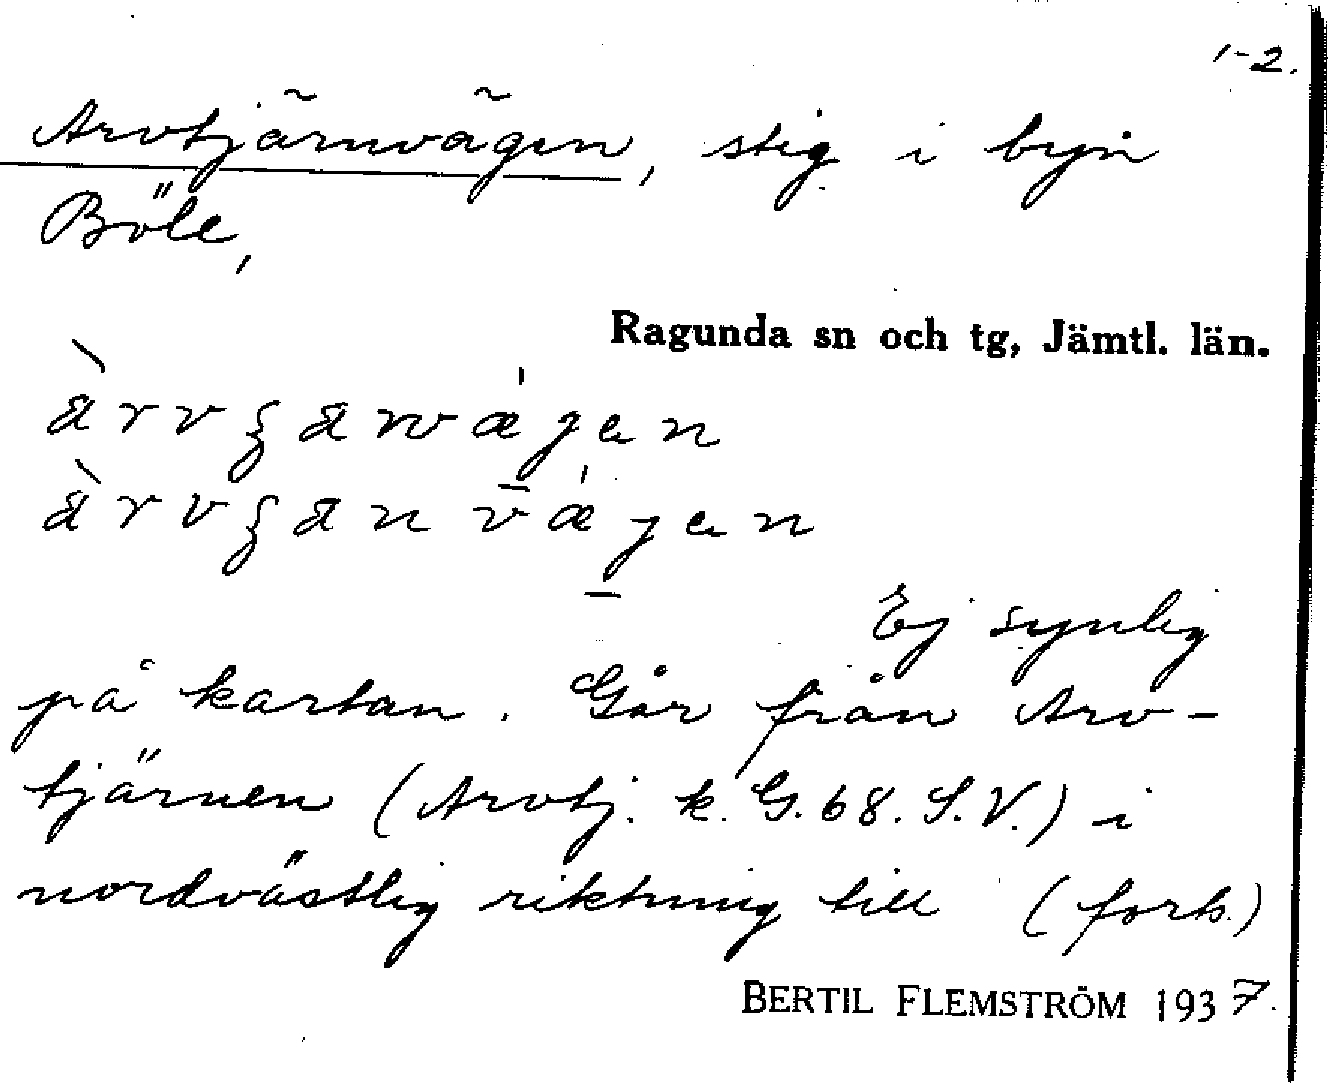 1-2.
Arvtjärnvägen, stig i byn
Böle,
Ragunda sn och tg, Jämtl. län.
Ej synlig
på kartan. Går från Arv-
tjärnen (Arvtj. k. G. 68. S.V.) i
nordvästlig riktning till (forts.)
BERTIL FLEMSTRÖM 1937.